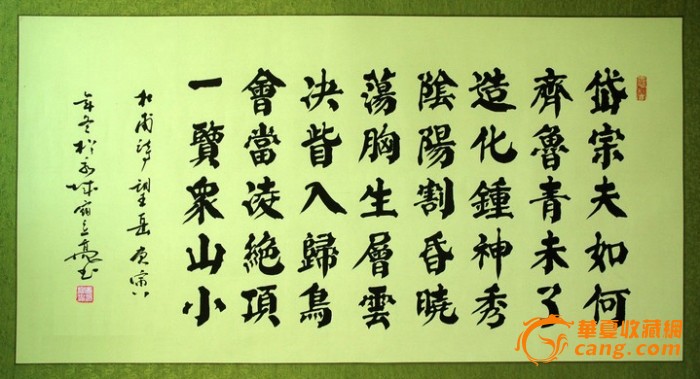 岱宗夫如何
齊魯青未了
造化鍾神秀
陰陽割昏曉
蕩胸生層雲
决眥入歸鳥
會當淩絶頂
一覽衆山小
杜甫詩望岳庚寅
年冬於
華夏收藏網
cang.com